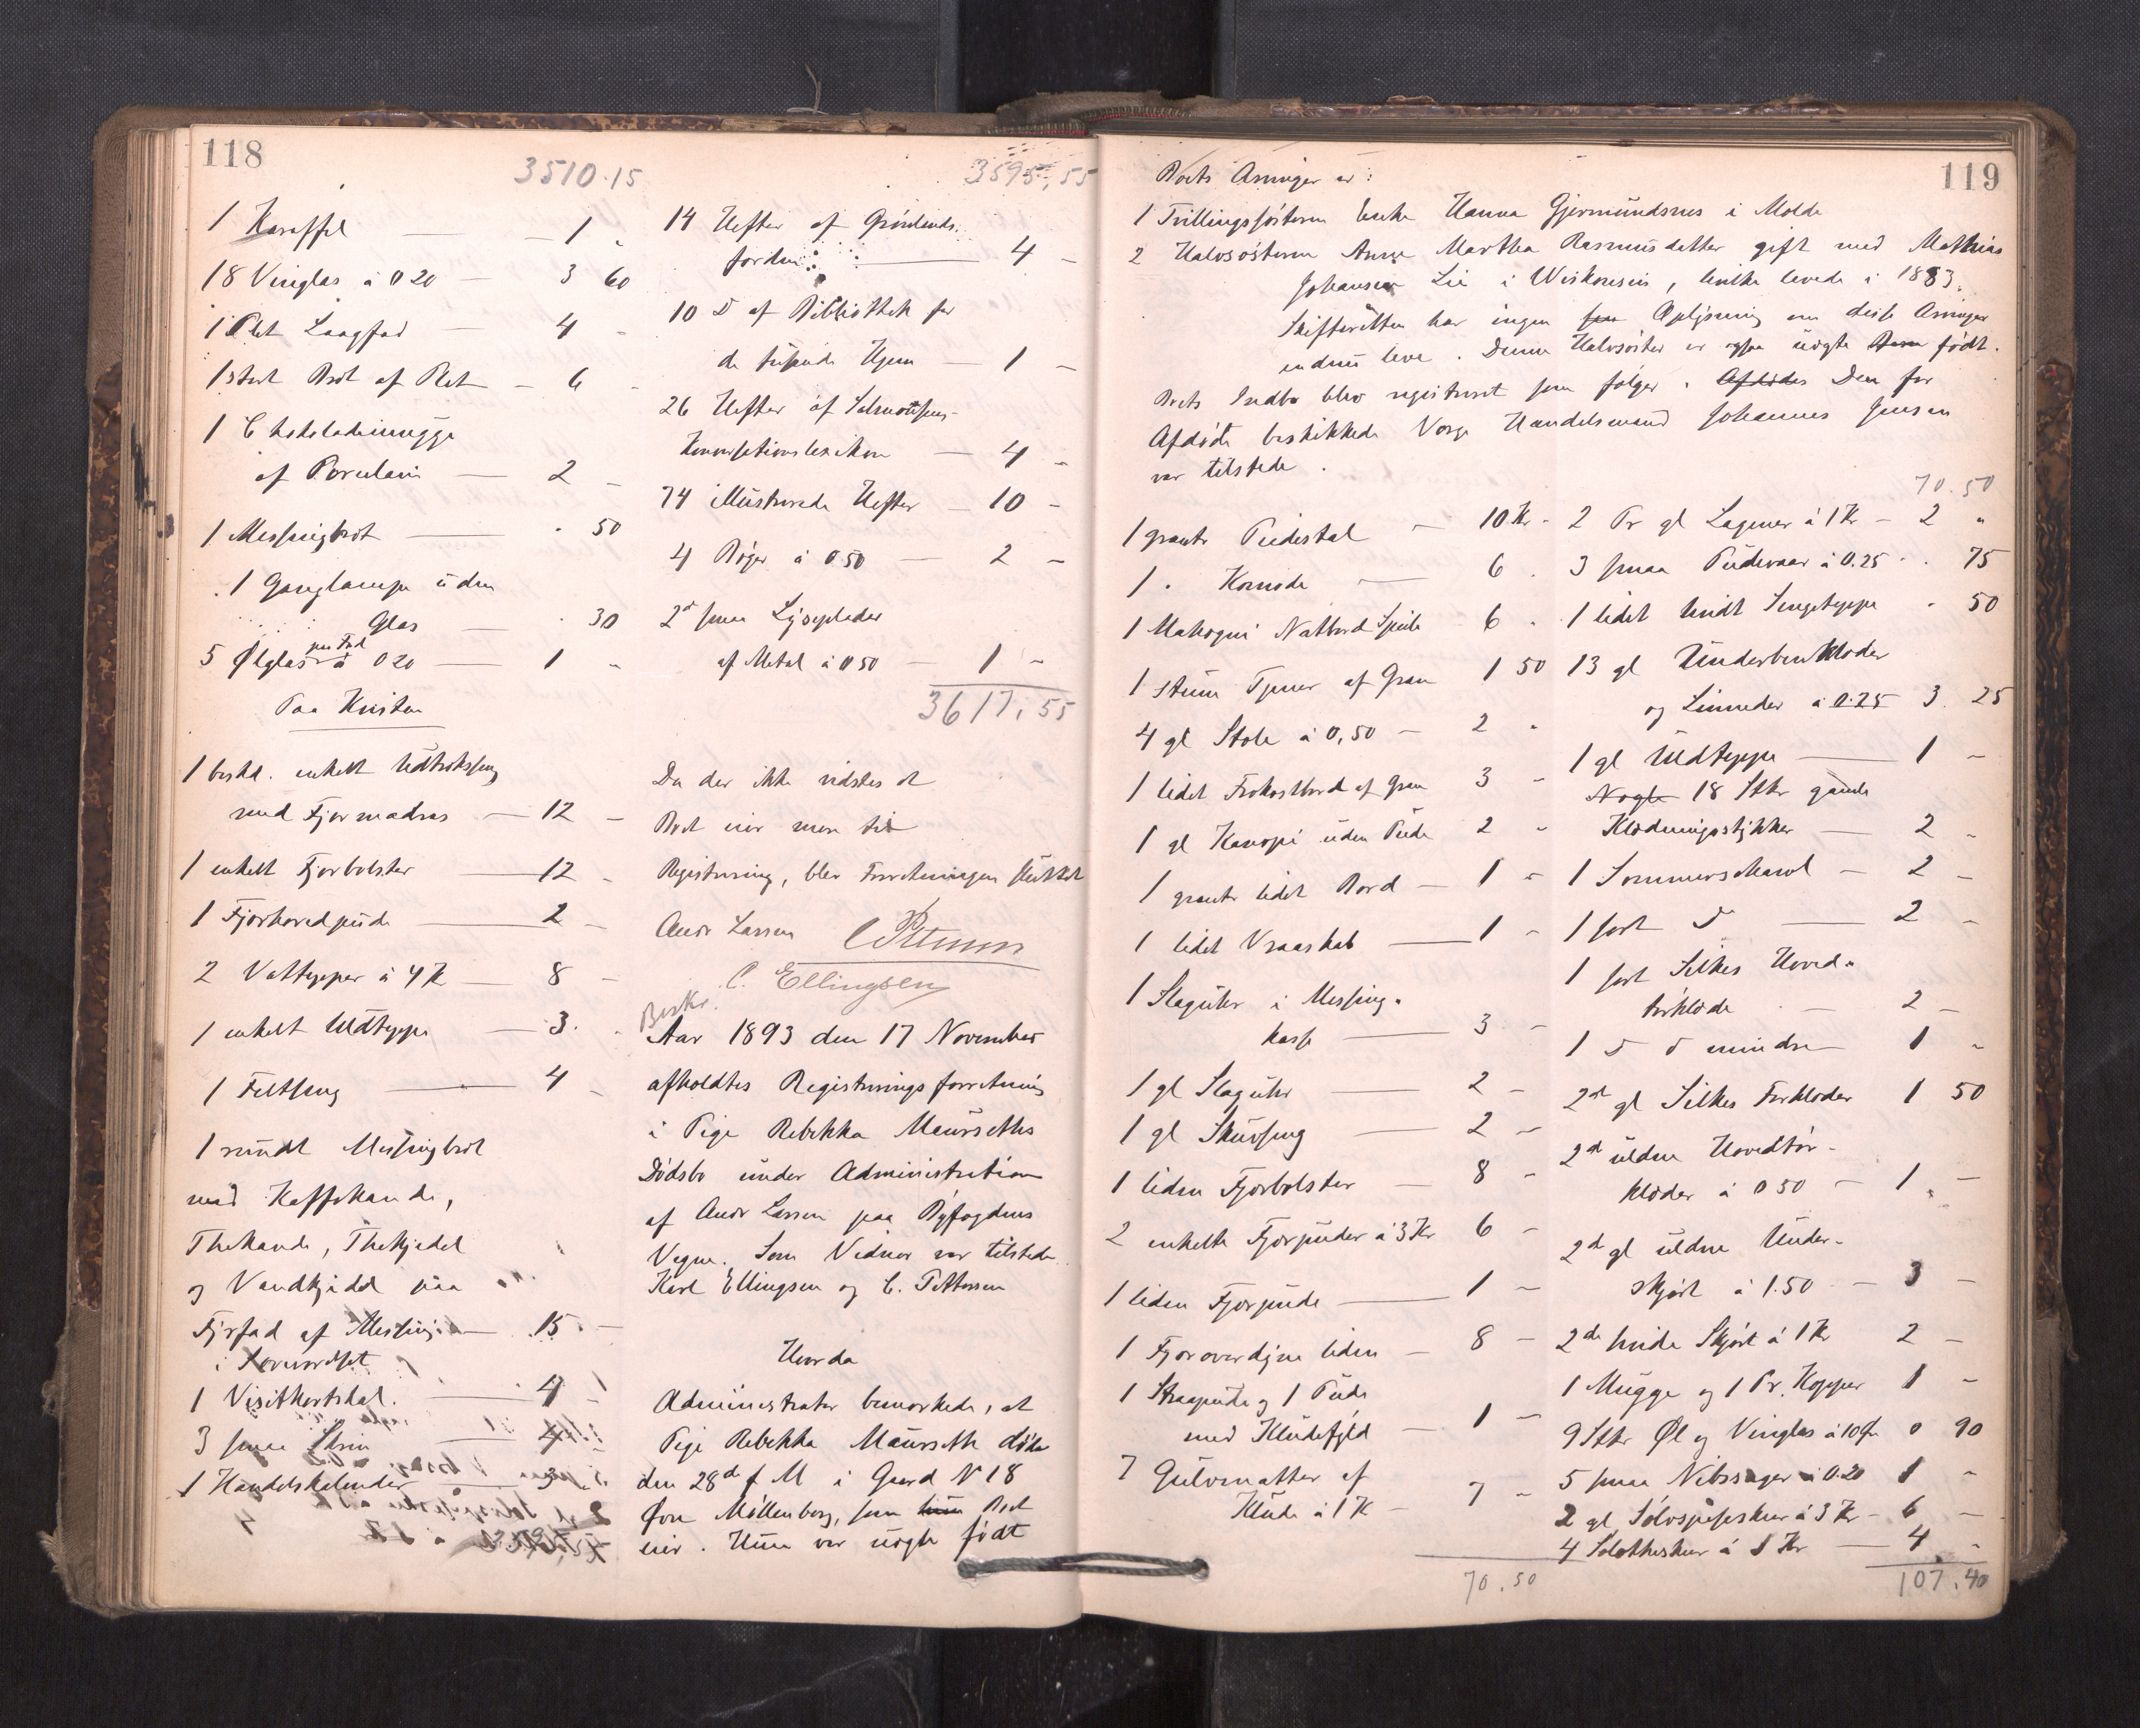 118
3510.15
1 Karaffel — 1 "
18 Vinglas á 0 20 — 3 60
1 Plet Laagfad — 4 -
1 stort Bret af Plet — 6 -
1 Chokolademugge
af Porcelain — 2 -
1 Messingbret — " 50
1 Ganglampe uden
Glas — " 30
per Fad
5 Ølglas á 0 20 — 1 "
Paa Kvisten
1 beskd. enkelt Udtræksseng
med Fjærmadras — 12 -
1 enkelt Fjærbolster — 12 -
1 Fjærhovedpude — 2 -
2 Vattepper á 4 Kr — 8 -
1 enkelt Uldteppe — 3 "
1 Feltseng — 4 -
1 rundt Messingbret
med Kaffekande,
Thekande, Thekjedel
og Vandkjedel paa
Fyrfad af Messing — 15 -
i
1 Visitkortskal. — 4
3 smaa Skrin — 4
1 Handelskalender — 3
3595,55
14 Hefter af
4 -
10 D af Bibliothek for
de tusende Hjem — 1 -
26 Hefter af Salmonsens
Konversationslexikon — 4 "
74 illustrerede Hefter — 10 -
4 Bøger á 0 50 — 2 -
2 smaa Lyseplader
af Metal á 0 50 — 1 -
3617,55
Da der ikke vidstes at
Boet eier mere til
Registrering, blev Forretningen sluttet
Andr Larsen C Pettersen
C. Ellingsen
Beskr.
Aar 1893 den 17 November
afholdtes Registreringsforretning
i Pige Rebekka Maurseths
Dødsbo under Administration
af Andr Larsen paa Byfogdens
Vegne. Som Vidner var tilstede
Karl Ellingsen og C. Pettersen
Hvorda
Administrator bemærkede, at
Pige Rebekka Maurseth døde
den 28de f M i Gaard N 18
Øvre Møllenberg, som hun Boet
eier. Hun var uægte født
119
Boets Arvinger er:
1 Tvillingsøsteren Enke Hanna Gjermundsnes i Molde
2 Halvsøsteren Anne Martha Rasmusdatter gift med Mathias
Johansen Lie i Wiskonsin, hvilke levede i 1883.
Skifteretten har ingen Oplysning om disse Arvinger
endnu leve. Denne Halvsøster er ogsaa uægte født.
Boets Indbo blev registreret som følger. Afdødes Den for
Afdøde beskikkede Værge Handelsmand Johannes Jensen
var tilstede.
1 grant Piedestal — 10 Kr -
1 " Komode — 6 "
1 Mahogni Natbord Speile 6 "
1 stum Tjener af Gran 1 50
4 gl Stole á 0,50 — 2 "
1 lidet Frokostbord af Gran 3 -
1 gl Kanapé uden Pude 2 -
1 grant lidet Bord — 1 "
1 lidet Vraaskab — 1 -
1 Slaguhr i Messing-
kasse — 3 -
1 gl Slaguhr — 2 -
1 gl Skuvseng — 2 -
1 liden Fjærbolster — 8 -
2 enkelte Fjærpuder á 3 Kr 6 -
1 liden Fjærpude — 1 -
1 Fjæroverdyne liden — 8 -
1 Straapude og 1 Pude
med Kludefyld — 1 -
7 Gulvmatter af
Klude á 1 Kr — 7 -
70.50
70.50
2 Pr gl Lagener á 1 Kr — 2 "
3 smaa Pudevaar á 0.25 " 75
1 lidet hvidt Sengeteppe " 50
13 gl Underbenklæder
og Linneder á 0.25 3 25
1 gl Uldteppe — 1 -
Nogle 18 Stkr gamle
Klædningsstykker — 2 -
1 Sommerschavl — 2 -
1 sort D — 2 -
1 sort Silkes Hoved-
tørklæde — 2 -
1 D D mindre 1 "
2de gl Silkes Forklæder 1 50
2de uldne Hovedtør-
klæder á 0 50 — 1 -
2de gl uldne Under-
skjørt á 1.50 — 3 -
2de hvide Skjørt á 1 Kr 2 -
1 Mugge og 1 Pr. Kopper 1 -
9 Stkr Øl og Vinglas á 10 Ør 0 90
5 smaa á 0.20 1 "
2 gl Sølvspiseskeer á 3 Kr — 6 -
4 Sølvtheskeer á 1 Kr — 4 "
107.40